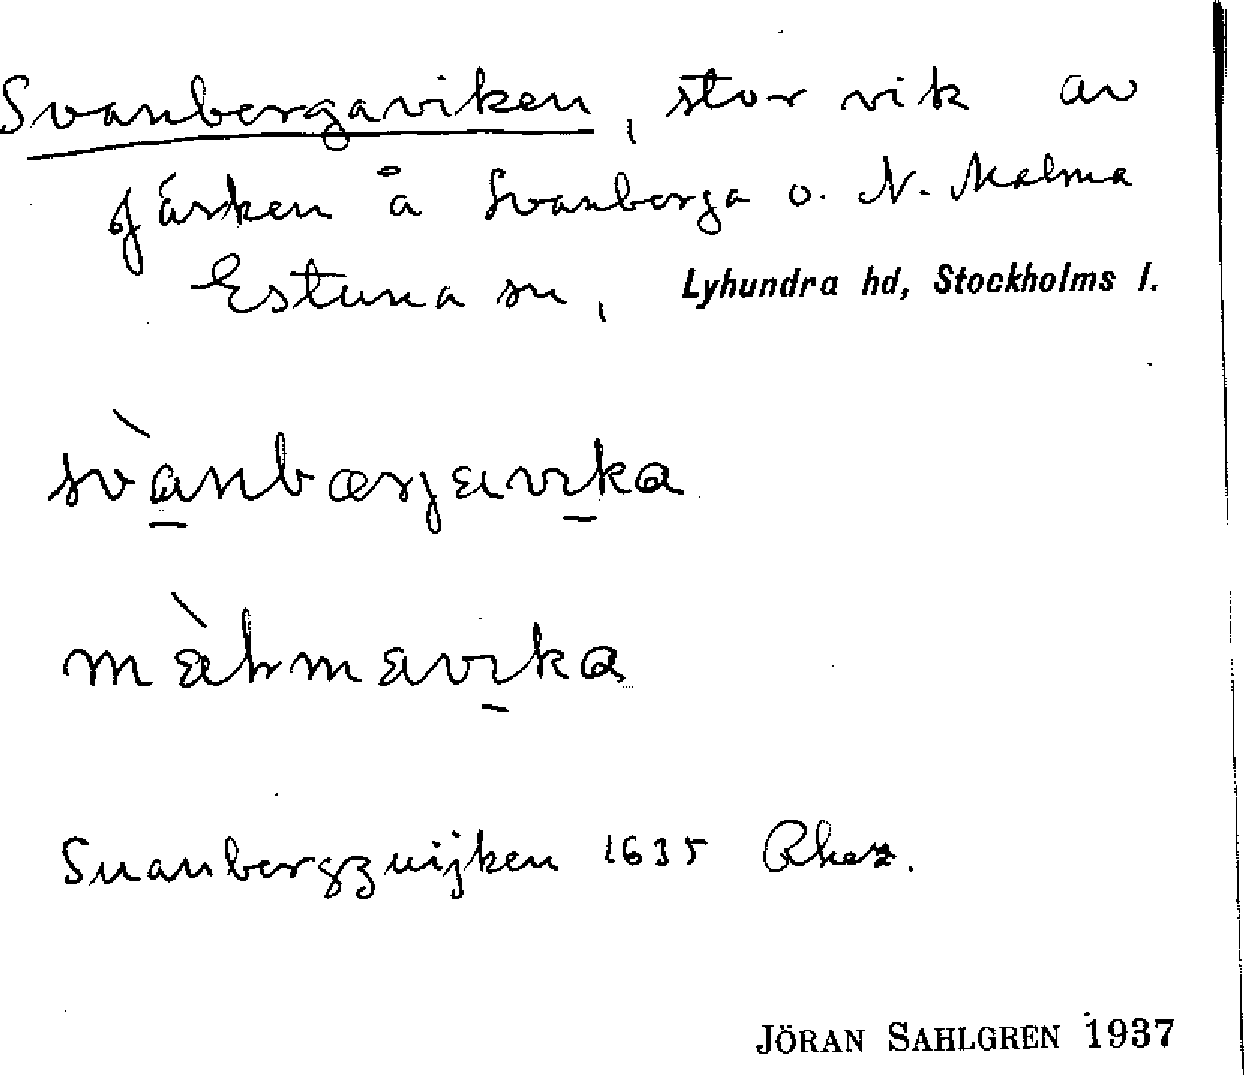 Svanbergaviken, stor vik av
fjärden å Svanberga o. N. Malma
Estuna sn, Lyhundra hd, Stockholms l.
svànbærjavika
màlmavika
Suanbergzuijken 1635 Rhez.
JÖRAN SAHLGREN 1937